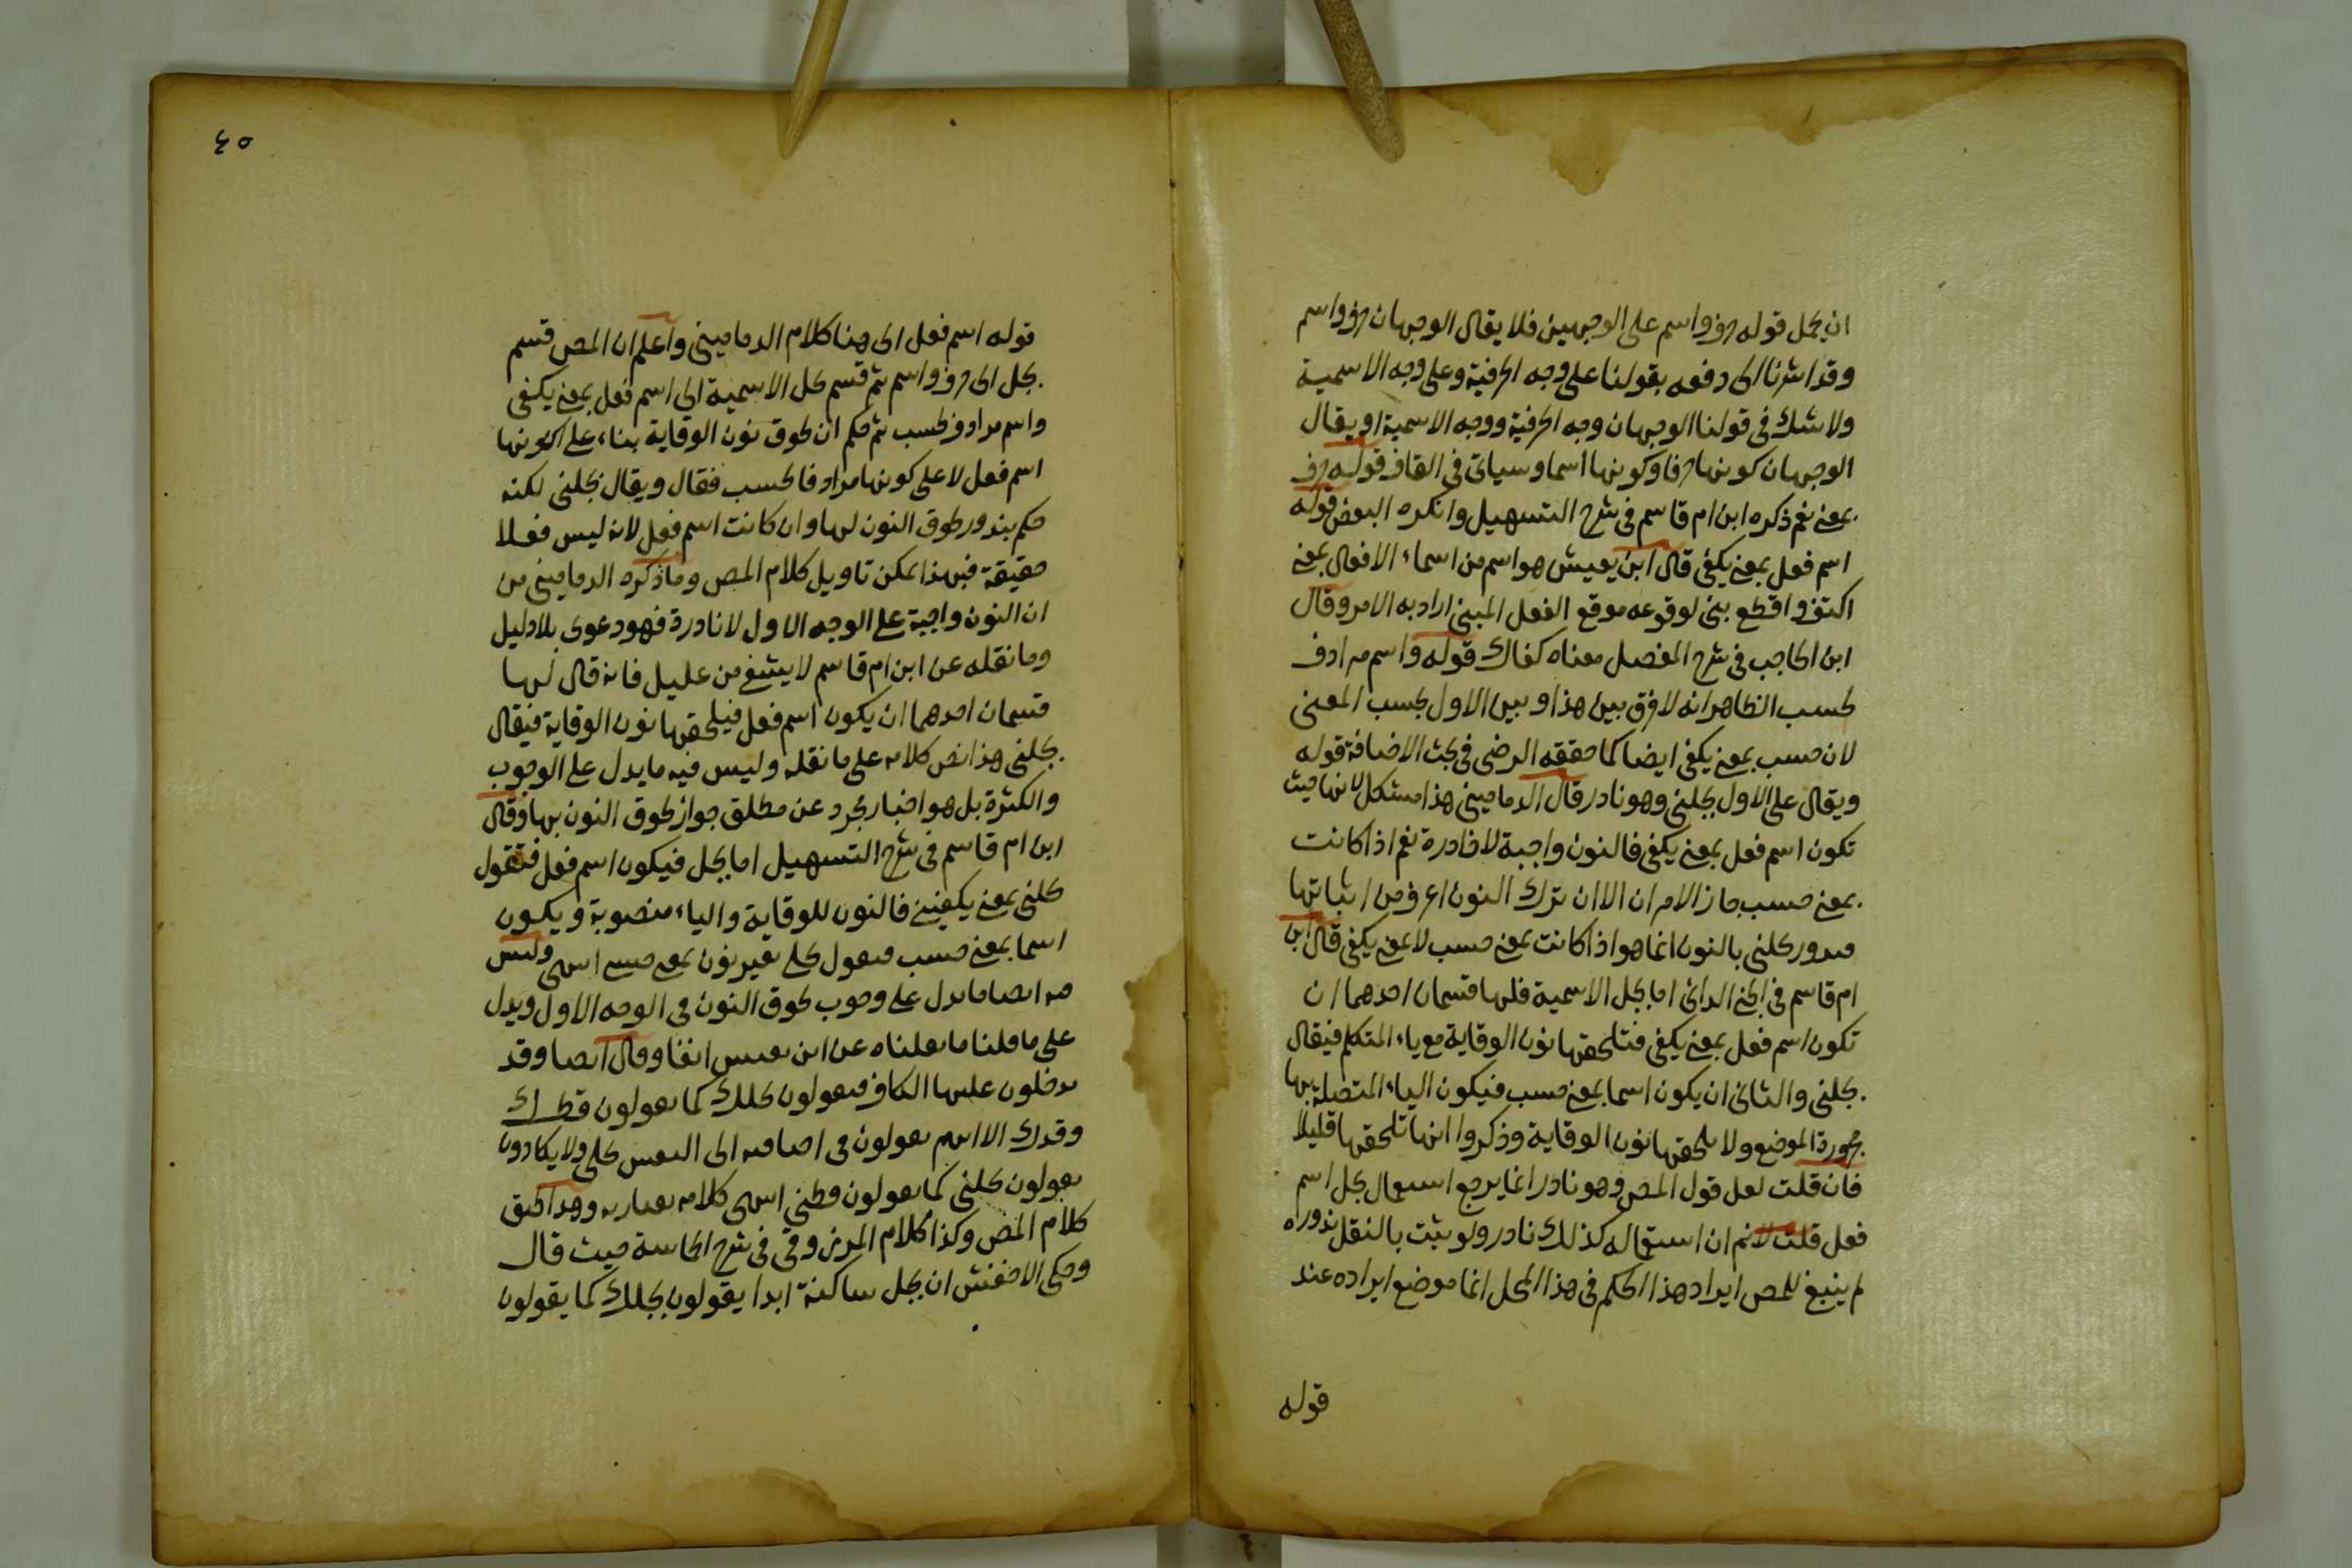 ان يحمل قوله حرف واسم على الوجهين فلا يقال الوجهان حرف واسم
وقد اشرنا الى دفعه بقولنا على وجه الحرفية وعلى وجه الاسمية
ولا شك فى قولنا الوجهان وجه الحرفية ووجه الاسمية او يقال
الوجهان كونها حرفا وكونها اسما وسياتى فى القاف قوله حرف
بمعنى نعم ذكره ابن ام قاسم فى شرح التسهيل وانكره البعض قوله
اسم فعل بمعنى يكفى قال ابن يعيش هو اسم من اسماء الافعال بمعنى
اكتف واقطع بنى لوقوعه موقع الفعل المبنى اراد به الامر وقال
ابن الحاجب فى شرح المفصل معناه كفاك قوله واسم مرادف
لحسب الظاهر انه لا فرق بين هذا وبين الاول بحسب المعنى
لان حسب بمعنى يكفى ايضا كما حققه الرضى فى بحث الاضافة قوله
ويقال على الاول بجلنى وهو نادر قال الدمامينى هذا مشكل لانها حيث
تكون اسم فعل بمعنى يكفى فالنون واجبة لا نادرة نعم اذا كانت
بمعنى حسب جاز الامران الا ان ترك النون اعرف من اثباتها
فندور بجلنى بالنون انما هو اذا كانت بمعنى حسب لا بمعنى يكفى قال ابن
ام قاسم فى الجنى الدانى اما بجل الاسمية فلها قسمان احدهما ان
تكون اسم فعل بمعنى يكفى فتلحقها نون الوقاية مع ياء المتكلم فيقال
بجلنى والثانى ان يكون اسما بمعنى حسب فيكون الياء المتصلة بها
مجرورة الموضع ولا يلحقها نون الوقاية وذكروا انها تلحقها قليلا
فان قلت لعل قول المص وهو نادر انما يرجع استعمال بجل اسم
فعل قلت لانم ان استعماله كذلك نادر ولو ثبت بالنقل ندوره
لم ينبغ للمص ايراد هذا الحكم فى هذا المحل انما موضع ايراده عند
قوله
٤٥
قوله اسم فعل الى هنا كلام الدمامينى واعلم ان المص قسم
بجل الى حرف واسم ثم قسم بجل الاسمية الى اسم فعل بمعنى يكفى
واسم مرادف لحسب ثم حكم ان لحوق نون الوقاية بناء على كونها
اسم فعل لا على كونها مرادفا لحسب فقال ويقال بجلنى لكنه
حكم بندور لحوق النون لها وان كانت اسم فعل لانه ليس فعلا
حقيقة فبهذا يمكن تاويل كلام المص وما ذكره الدمامينى من
ان النون واجبة على الوجه الاول لا نادرة فهو دعوى بلا دليل
وما نقله عن ابن ام قاسم لا يشفى من عليل فانه قال لها
قسمان احدهما ان يكون اسم فعل فيلحقها نون الوقاية فيقال
بجلنى هذا نص كلامه على ما نقله وليس فيه ما يدل على الوجوب
والكثرة بل هو اخبار مجرد عن مطلق جواز لحوق النون بها وقال
ابن ام قاسم فى شرح التسهيل اما بجل فيكون اسم فعل فتقول
بجلنى بمعنى يكفينى فالنون للوقاية والياء منصوبة ويكون
اسما بمعنى حسب فيقول بجلى بغير نون بمعنى حسبى انتهى وليس
فيه ايضا ما يدل على وجوب لحوق النون فى الوجه الاول ويدل
على ما قلنا ما نقلناه عن ابن يعيش انفا وقال ايضا وقد
يدخلون عليها الكاف فيقولون بجلك كما يقولون قطك
وقدك الا انهم يقولون فى اضافته الى النفس بجلى ولا يكادون
يقولون بجلنى كما يقولون قطنى انتهى كلامه بعبارته وهذا تحقق
كلام المص وكذا كلام المرزوقى فى شرح الحماسة حيث قال
وحكى الاخفش ان بجل ساكنة ابدا يقولون بجلك كما يقولون